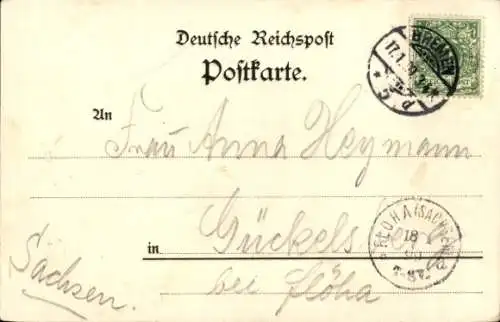 Deutsche Reichspost
Postkarte.
BREMEN
17.1.
An
Frau Anna Heymann
FLÖHA (SACHSEN)
18
in Gückelsberg
bei Flöha
Sachsen.